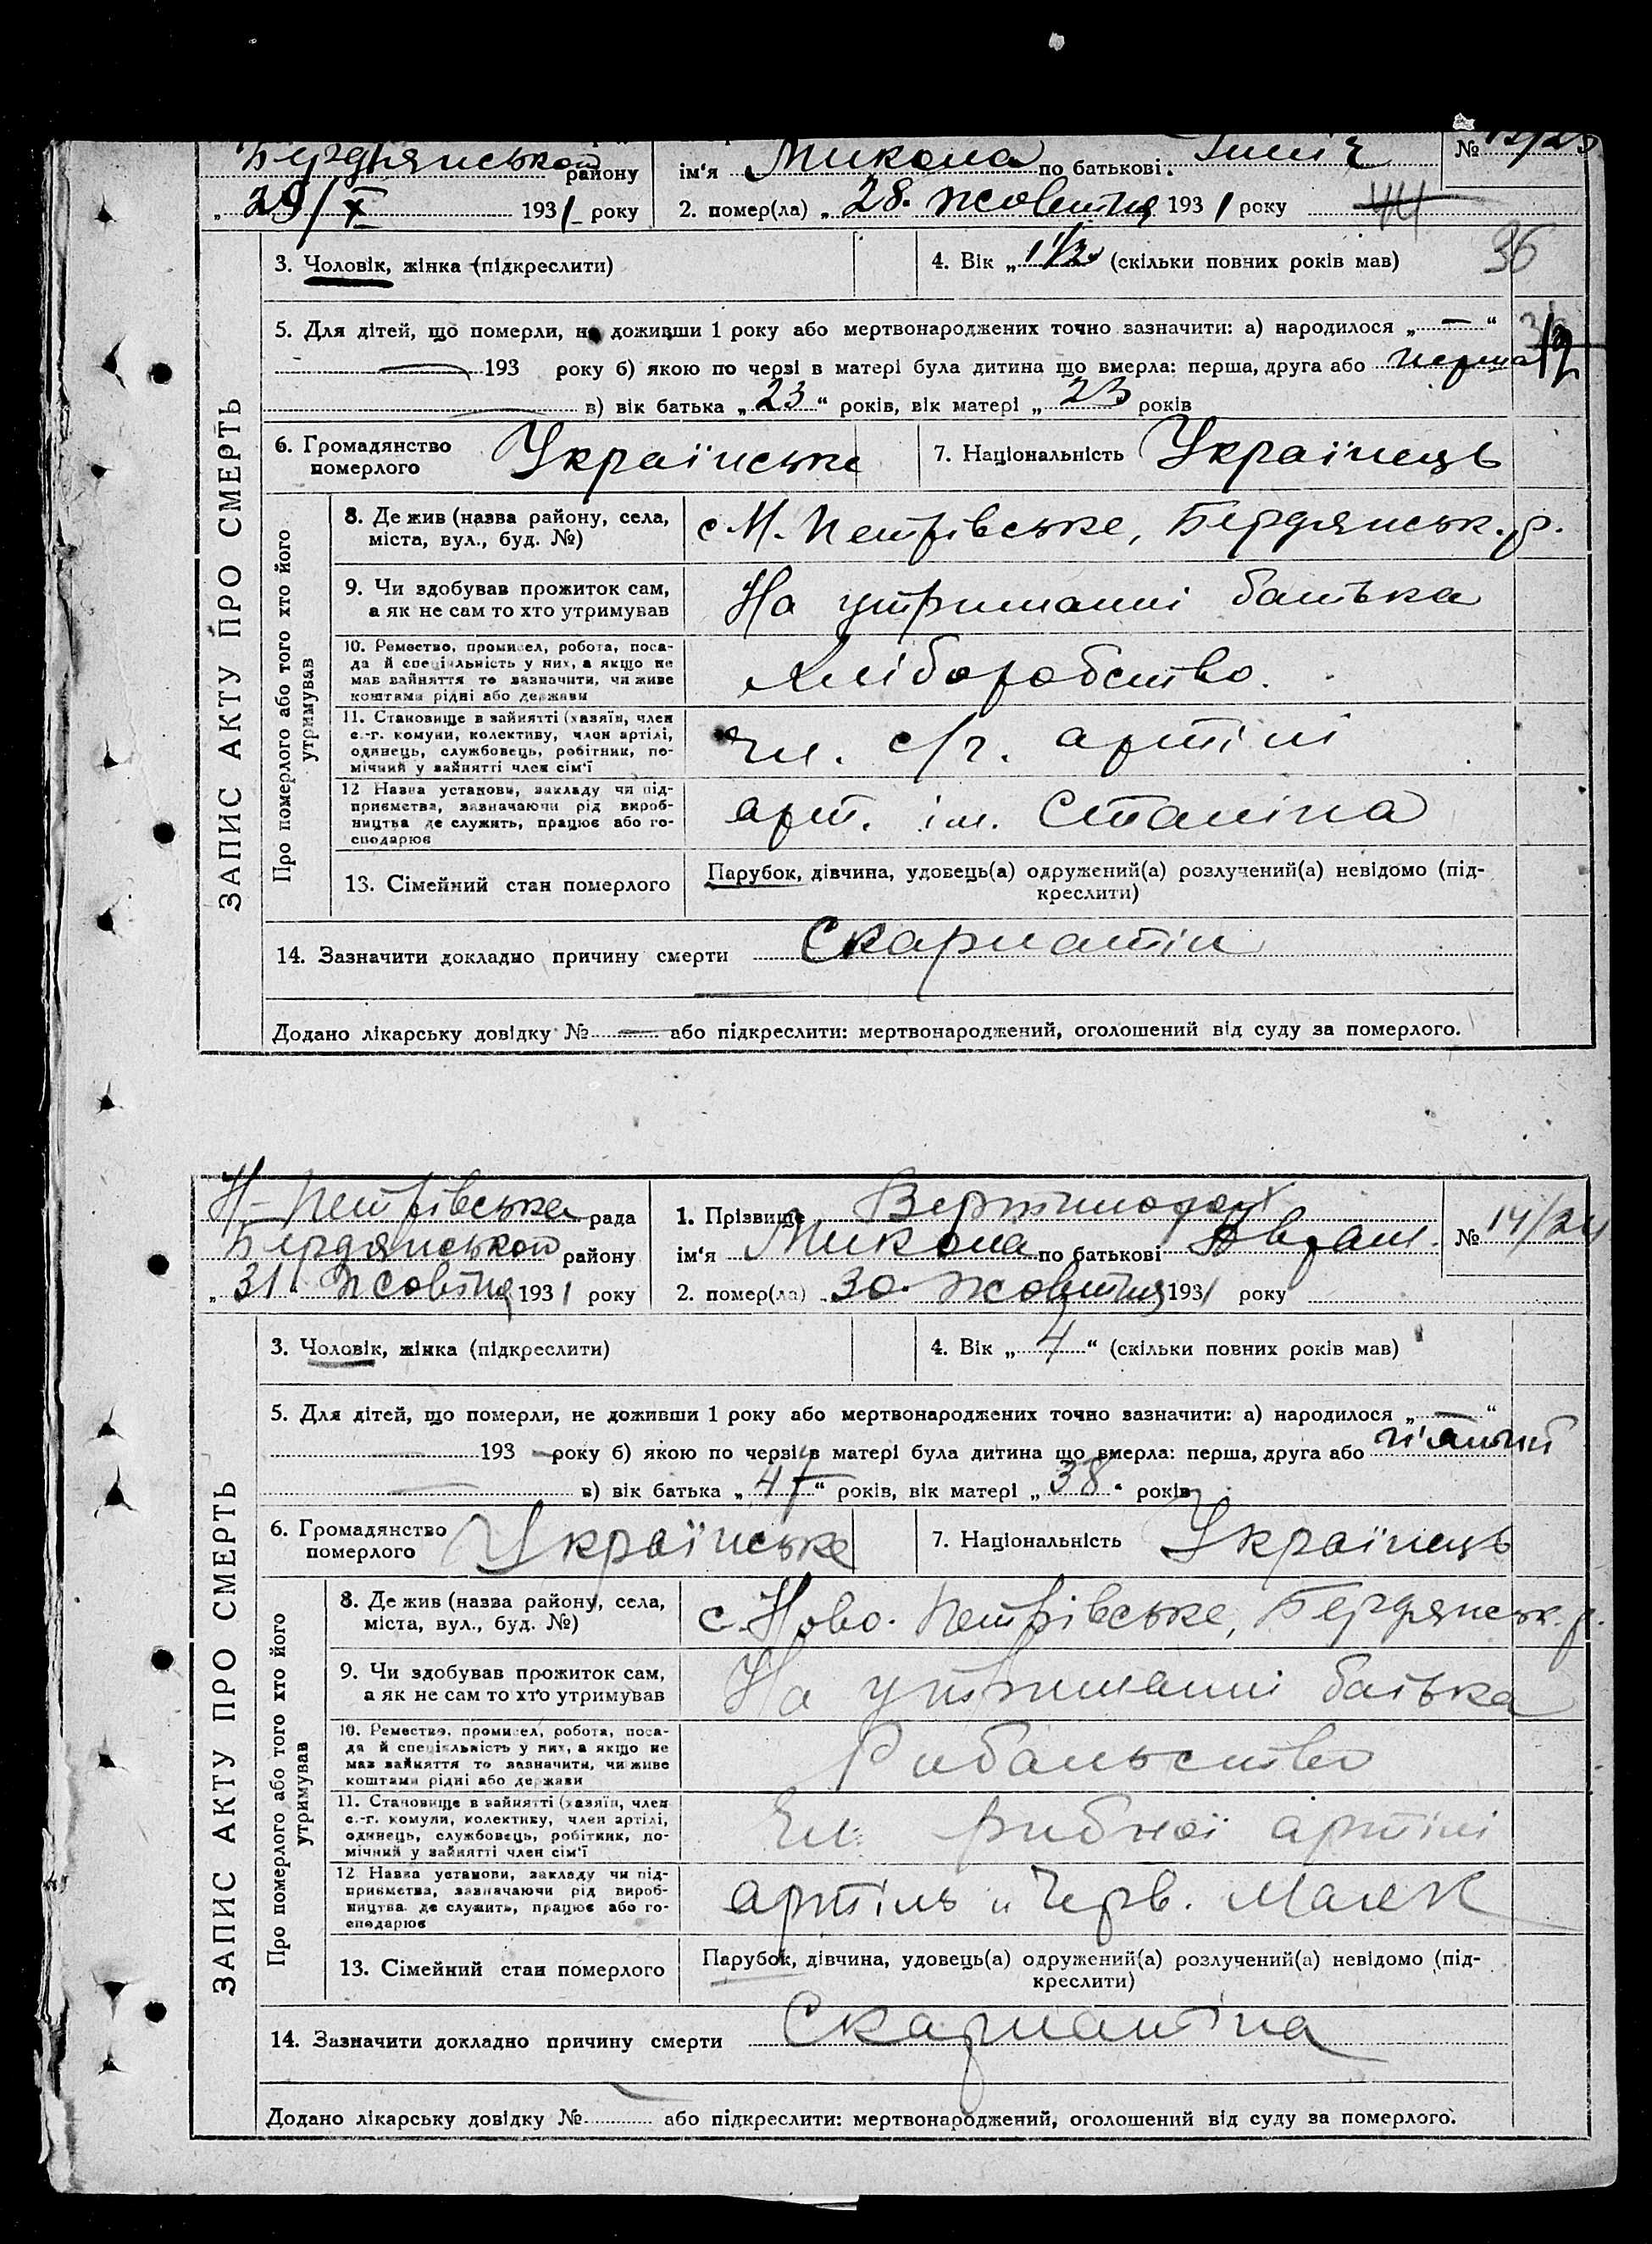 Бердянської району
ім'я Микола по батькові Ілліч
№ 13/23
29/X 1931 року
2. помер(ла) „ 28. жовтня 1931 року
44
3. Чоловік, жінка (підкреслити)
4. Вік „ 1 1/2 (скільки повних років мав)
36
5. Для дітей, що померли, не доживши 1 року або мертвонароджених точно зазначити: а) народилося „ — “
193 року б) якою по черзі в матері була дитина що вмерла: перша, друга або перша
в) вік батька „ 23 “ років, вік матері „ 23 років
6. Громадянство померлого Українське
7. Національність Українець
ЗАПИС АКТУ ПРО СМЕРТЬ
Про померлого або того хто його утримував
8. Де жив (назва району, села,
міста, вул., буд. №)
с Н. Петрівське, Бердянськ. р.
9. Чи здобував прожиток сам,
а як не сам то хто утримував
На утриманні батька
10. Ремество, промисел, робота, поса-
да й спеціяльність у них, а якщо не
мав зайняття то зазначити, чи живе
коштами рідні або держави
Хліборобство.
11. Становище в зайнятті (хазяїн, член
с.-г. комуни, колективу, член артілі,
одинець, службовець, робітник, по-
мічний у зайнятті член сім'ї
Чл. с/г. артілі
12 Назва установи, закладу чи під-
приємства, зазначаючи рід вироб-
ництва де служить, працює або го-
сподарює
арт. ім. Сталіна
13. Сімейний стан померлого
Парубок, дівчина, удовець(а) одружений(а) розлучений(а) невідомо (під-
креслити)
14. Зазначити докладно причину смерти Скарлатін
Додано лікарську довідку № — або підкреслити: мертвонароджений, оголошений від суду за померлого.
Н-Петрівська рада
1. Прізвище
№ 14/24
Бердянської району
ім'я Микола по батькові Аврам.
„ 31 “ жовтня 1931 року
2. помер(ла) „ 30. жовтня 1931 року
3. Чоловік, жінка (підкреслити)
4. Вік „ 4 “ (скільки повних років мав)
5. Для дітей, що померли, не доживши 1 року або мертвонароджених точно зазначити: а) народилося „ — “
193 — року б) якою по черзі в матері була дитина що вмерла: перша, друга або п'ятий
в) вік батька „ 47 “ років, вік матері „ 38 “ років
6. Громадянство померлого Українське
7. Національність Українець
ЗАПИС АКТУ ПРО СМЕРТЬ
Про померлого або того хто його утримував
8. Де жив (назва району, села,
міста, вул., буд. №)
с. Ново-Петрівське, Бердянськ. р.
9. Чи здобував прожиток сам,
а як не сам то хто утримував
На утриманні батька
10. Ремество, промисел, робота, поса-
да й спеціяльність у них, а якщо не
мав зайняття то зазначити, чи живе
коштами рідні або держави
Рибальство
11. Становище в зайнятті (хазяїн, член
с.-г. комуни, колективу, член артілі,
одинець, службовець, робітник, по-
мічний у зайнятті член сім'ї
Чл. рибної артілі
12 Назва установи, закладу чи під-
приємства, зазначаючи рід вироб-
ництва де служить, працює або го-
сподарює
артіль „ Черв. Маяк
13. Сімейний стан померлого
Парубок, дівчина, удовець(а) одружений(а) розлучений(а) невідомо (під-
креслити)
14. Зазначити докладно причину смерти Скарлатіна
Додано лікарську довідку № або підкреслити: мертвонароджений, оголошений від суду за померлого.